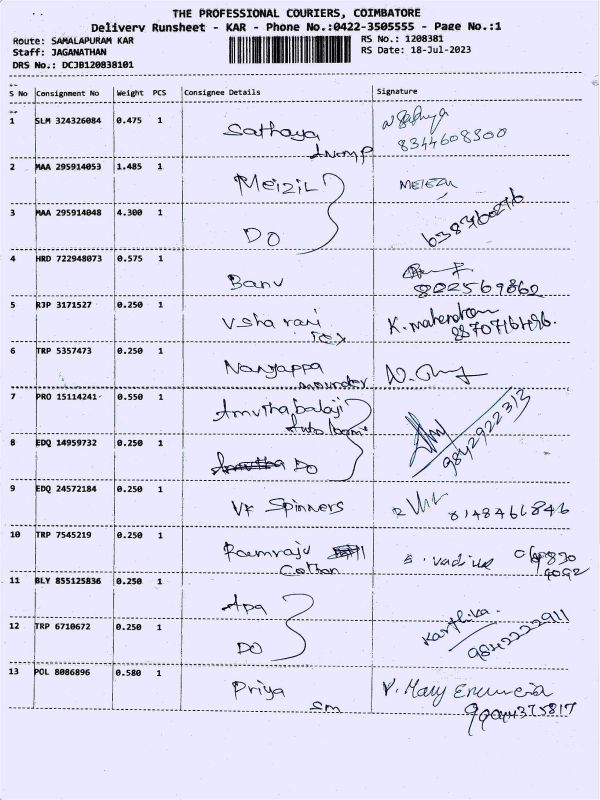 THE PROFESSIONAL COURIERS, COIMBATORE
Delivery Runsheet - KAR - Phone No.:0422-3505555 - Page No.:1
Route: SAMALAPURAM KAR
RS No.: 1208381
Staff: JAGANATHAN
RS Date: 18-Jul-2023
DRS No.: DCJB120838101
S No Consignment No Weight PCS Consignee Details Signature
1 SLM 324326084 0.475 1 Sathaya
8344608300
2 MAA 295914053 1.485 1 Meizil
3 MAA 295914048 4.300 1 DO
4 HRD 722948073 0.575 1 Banu
802569862
5 RJP 3171527 0.250 1 Usha rani K. mahendran
Tex
6 TRP 5357473 0.250 1 Nanjappa
7 PRO 15114241 0.550 1 Amuthabalaji
9842922313
8 EDQ 14959732 0.250 1 DO
9 EDQ 24572184 0.250 1 VK Spinners 8148466846
10 TRP 7545219 0.250 1 Ramraju
Cotton
11 BLY 855125836 0.250 1 Apa Karthika.
12 TRP 6710672 0.250 1 DO 9842222911
13 POL 8086896 0.580 1 Priya P. Mary
Sm